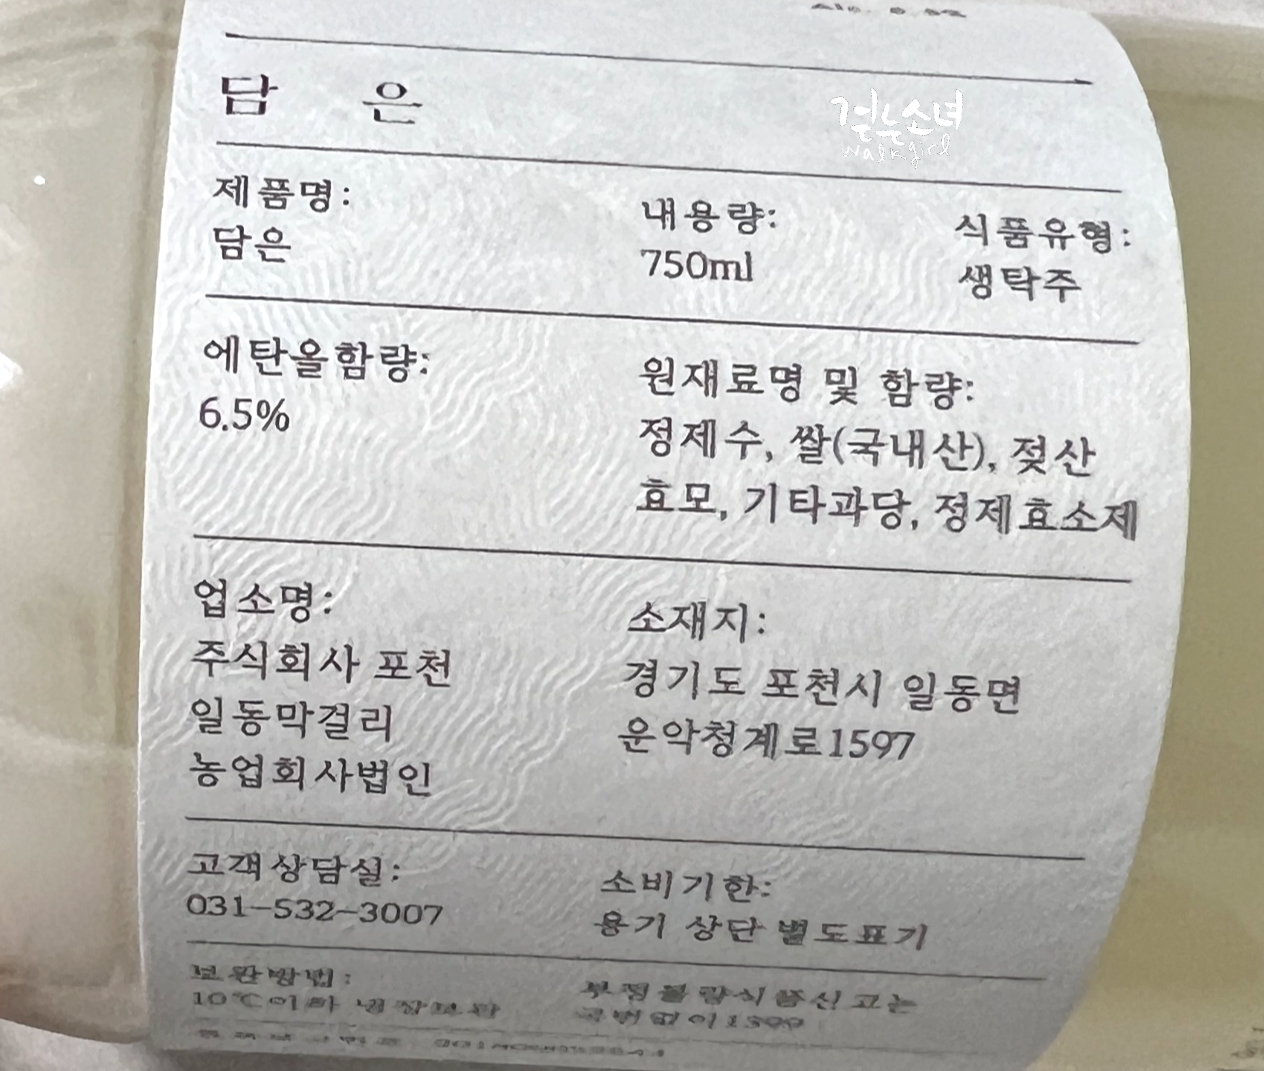 담은
걷는소녀
walkgirl
제품명:
담은
내용량:
750ml
식품유형:
생탁주
에탄올함량:
6.5%
원재료명 및 함량:
정제수, 쌀(국내산), 젖산
효모, 기타과당, 정제효소제
업소명:
주식회사 포천
일동막걸리
농업회사법인
소재지:
경기도 포천시 일동면
운악청계로1597
고객상담실:
031-532-3007
소비기한:
용기 상단 별도표기
보관방법:
10℃이하 냉장보관
부정불량식품신고는
국번없이1399